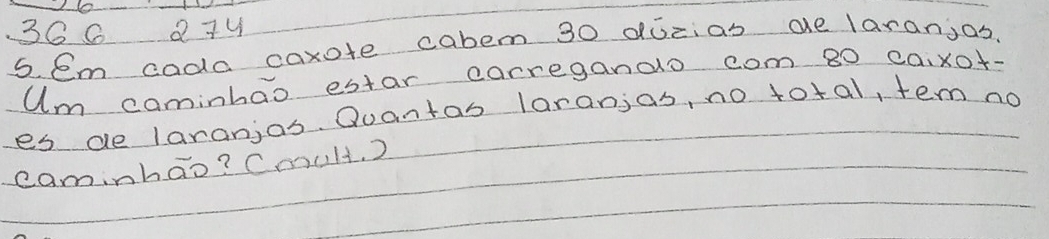 366 274
5. Em cada caxote cabem 30 dúzias de laranjas.
Um caminhão estar carregando com 80 caixot-
es de laranjas. Quantas laranjas, no total, tem no
caminhão? (mult.)